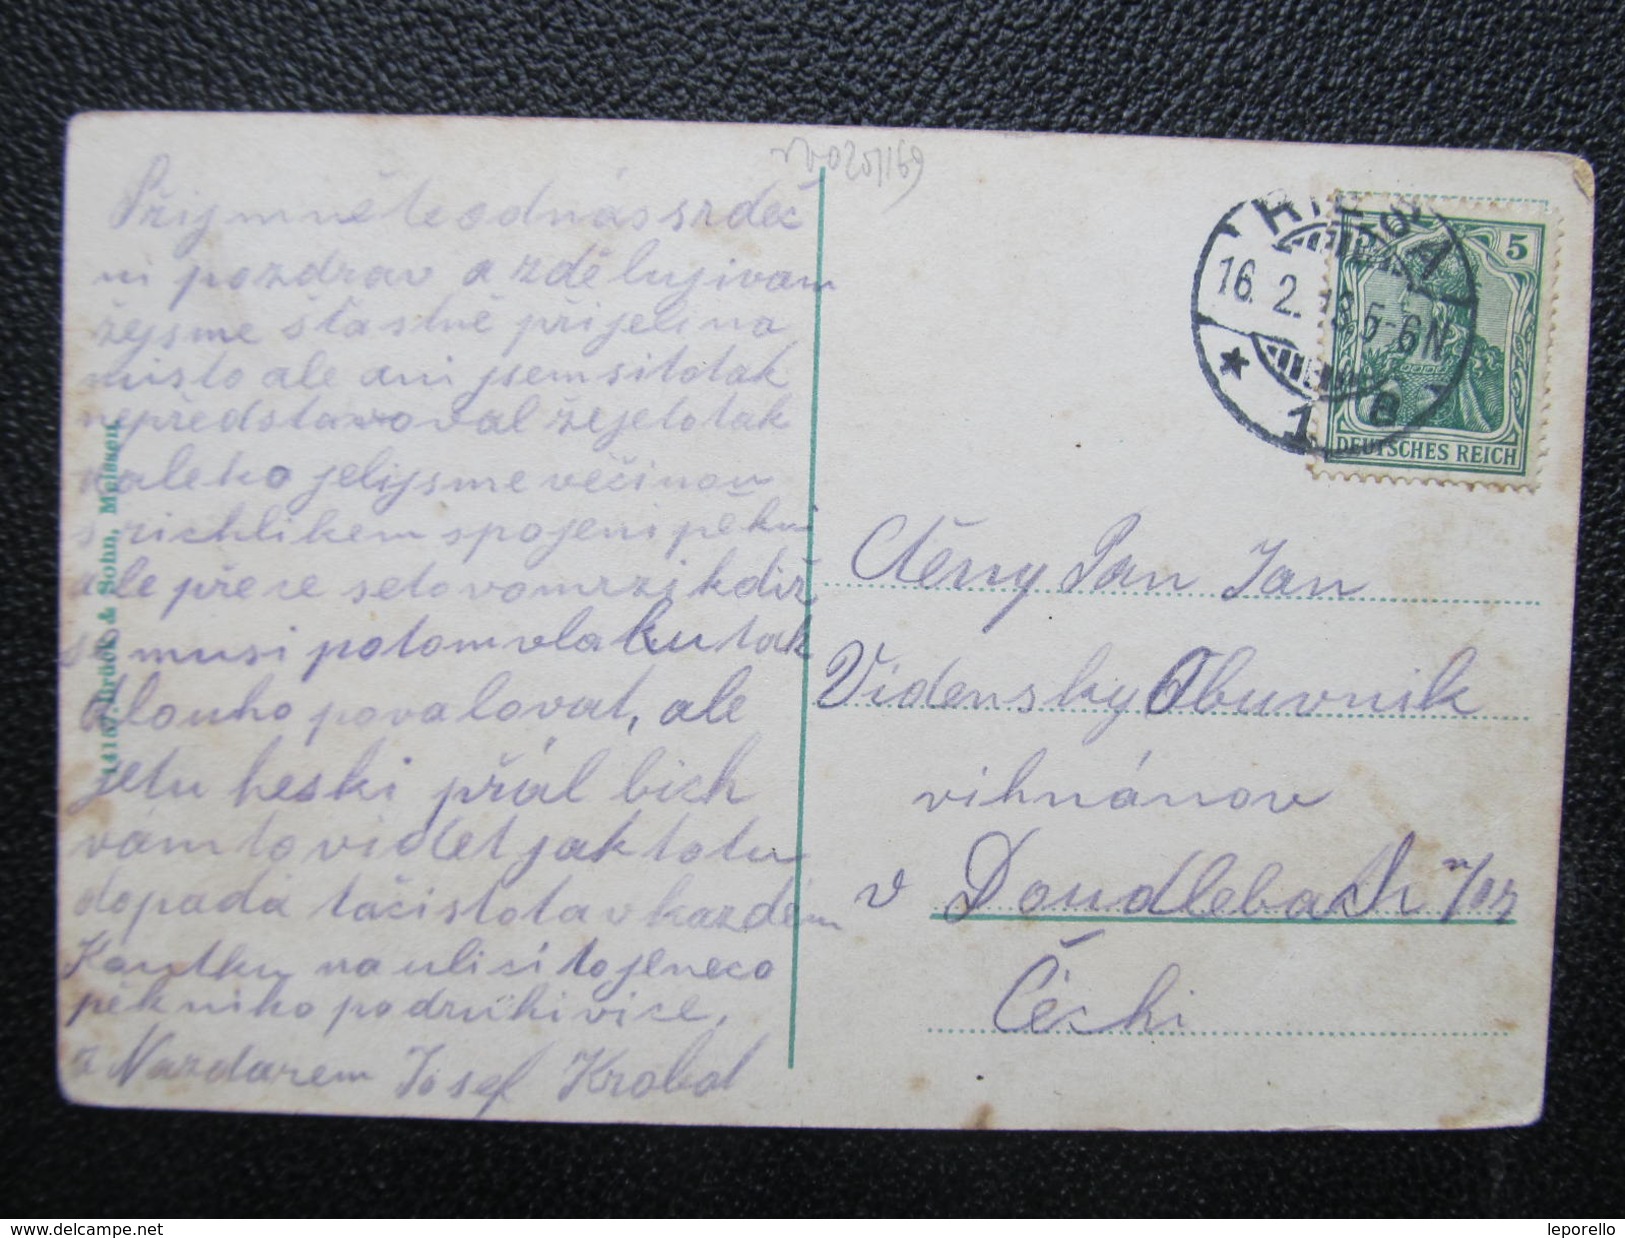 Přijmněte od nás srdeč
ni pozdrav a zděluji vam
žejsme štastně přijeli na
misto ale ani jsem si to tak
nepředstavoval že je to tak
daleko jeli jsme věčinou
s richlikem spojeni pěkni
ale přece se to vomrzi kdiž
se musi potom vlaku tak
dlouho povalovat, ale
je tu heski přál bich
vám to videt jak to tu
dopadá ta čistota v kazdém
Koutku na uli si to je neco
pěkniho podruhi vice,
z Nazdarem Josef Krobot
14167 Brück & Sohn, Meissen.
RIESA
16. 2. 13. 5-6N
* 1 e
5
DEUTSCHES REICH
Ctěny Pan Jan
Vidensky Obuvnik
vihnánov
v Doudlebach n/or
Čéchi
www.delcampe.net
leporello